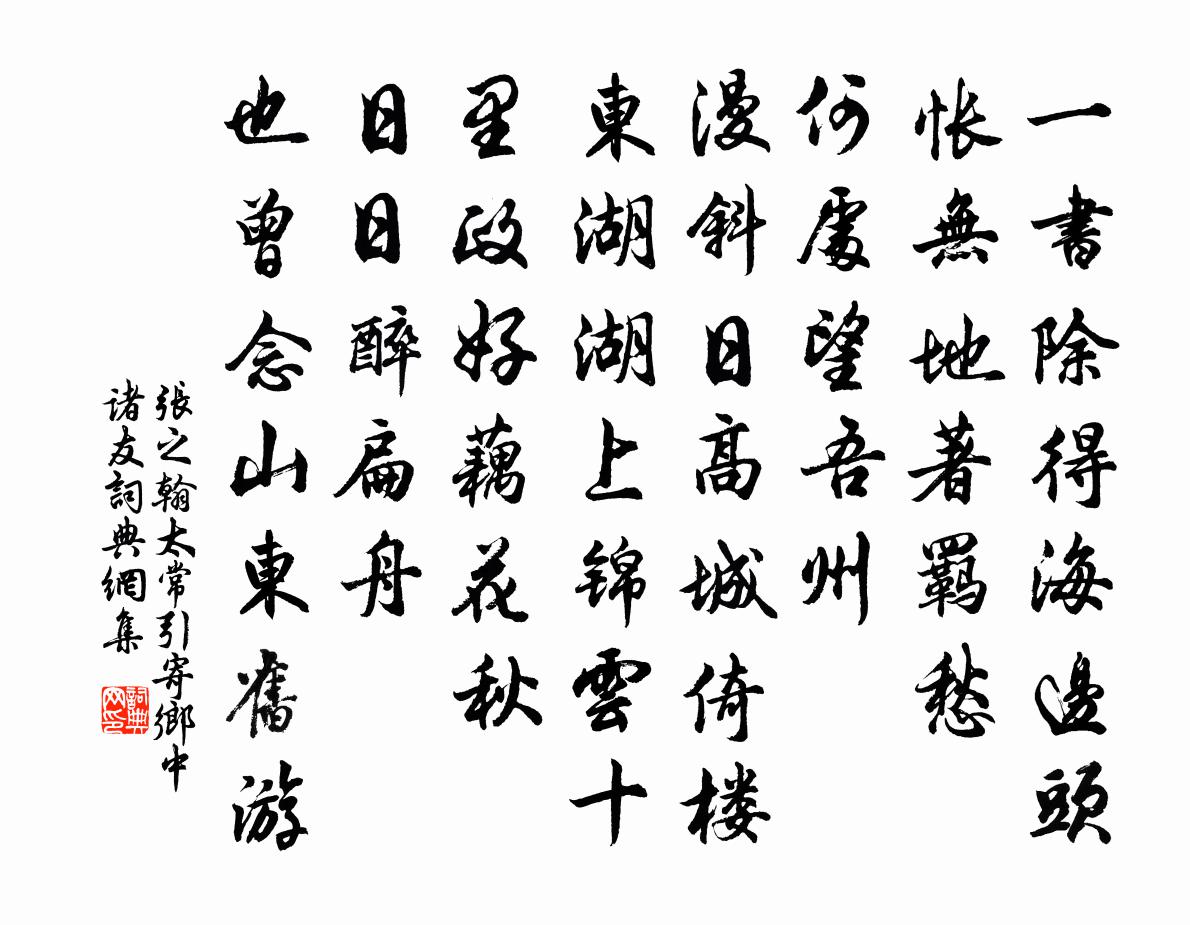 一書除得海邊頭
悵無地著羈愁
何處望吾州
漫斜日高城倚楼
東湖湖上錦雲十
里政好藕花秋
日日醉扁舟
也曾念山東舊游
張之翰太常引寄鄉中
诸友詞典網集
詞典
网印